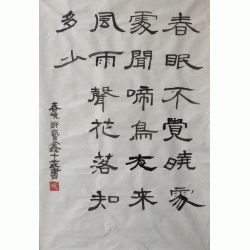 春眠不覺曉處
處聞啼鳥夜来
風雨聲花落知
多少
春曉 許